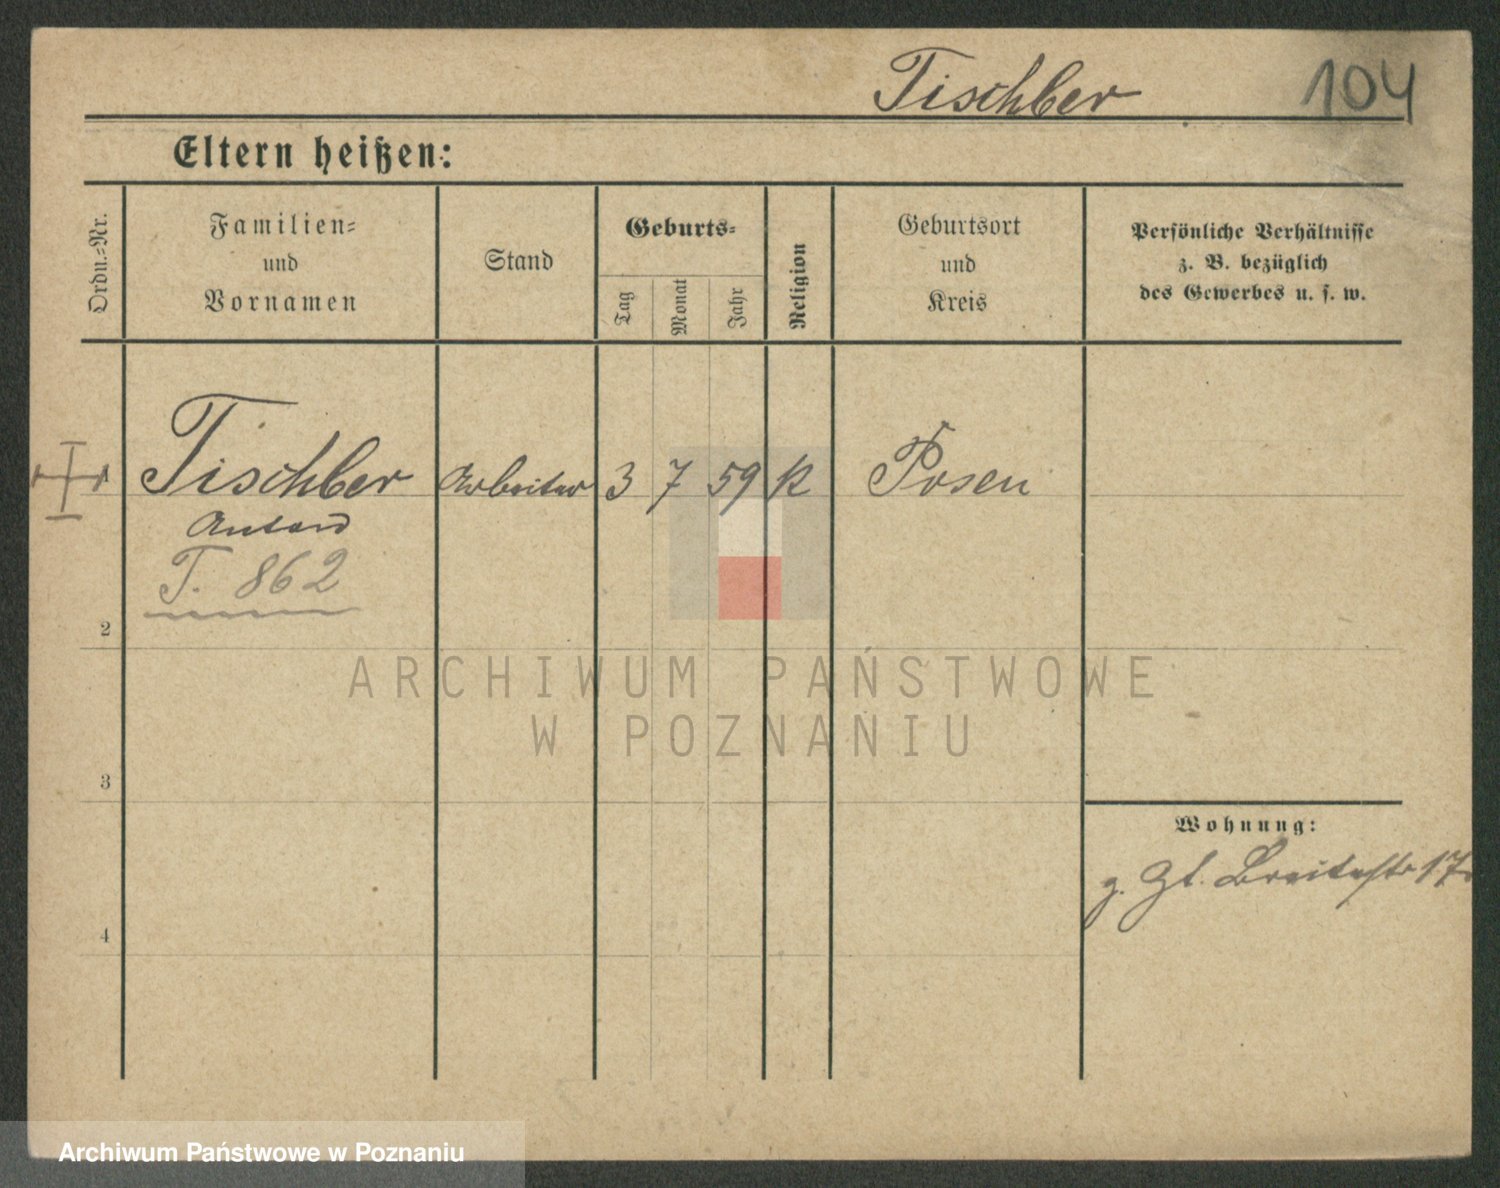 Tischler 104
Eltern heißen:
Ordn.-Nr.
Familien-
und
Vornamen
Stand
Geburts-
Tag
Monat
Jahr
Religion
Geburtsort
und
Kreis
Persönliche Verhältnisse
z. B. bezüglich
des Gewerbes u. s. w.
Tischler Arbeiter 3 7 59 K Posen
Anton
T. 862
2
3
4
Wohnung:
z. Zt. Breitestr 17
ARCHIWUM PAŃSTWOWE
W POZNANIU
Archiwum Państwowe w Poznaniu